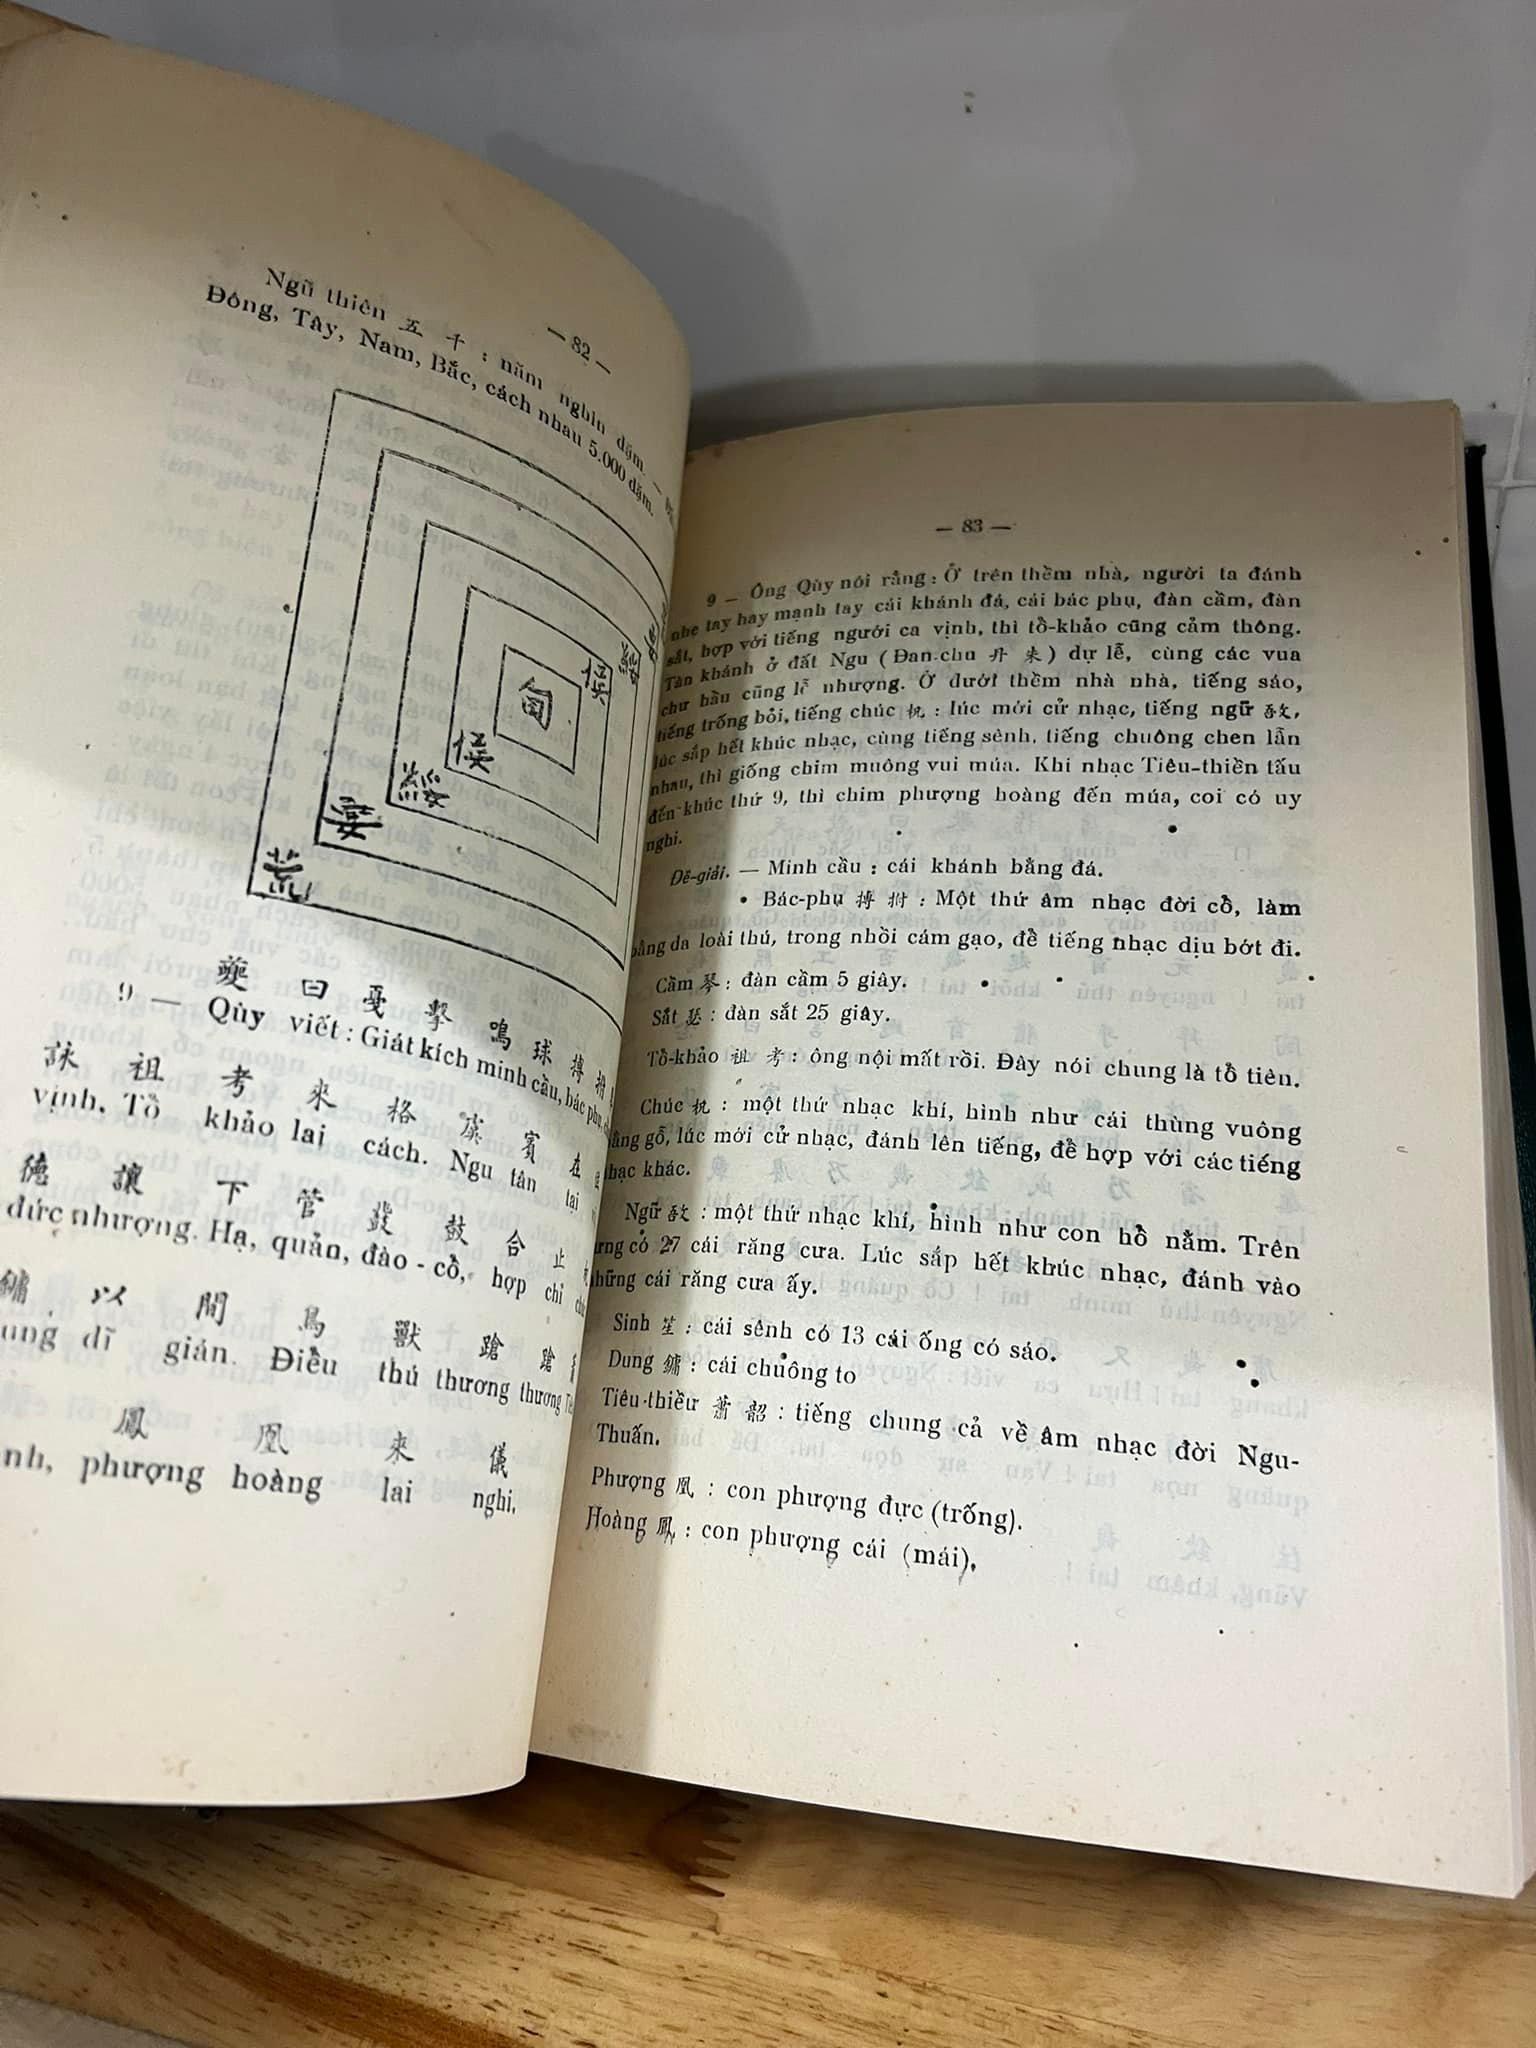 — 82 —
Ngũ thiên 五 千 : năm nghìn dặm. —
Đông, Tây, Nam, Bắc, cách nhau 5.000 dặm.
甸
侯
侯
綏
綏
要
荒
夔 曰 戛 擊 鳴 球 搏 拊
9 — Qùy viết : Giát kích minh cầu, bác phụ,
詠 祖 考 來 格 虞 賓 在
vịnh. Tổ khảo lai cách. Ngu tân tại
德 讓 下 管 鼗 鼓 合 止
đức nhượng. Hạ, quản, đào - cổ, hợp chỉ
鏞 以 間 鳥 獸 蹌 蹌
ung dĩ gián. Điều thú thương thương
鳳 凰 來 儀
nh, phượng hoàng lai nghi.
— 83 —
9 — Ông Qùy nói rằng : Ở trên thềm nhà, người ta đánh
nhẹ tay hay mạnh tay cái khánh đá, cái bác phụ, đàn cầm, đàn
sắt, hợp với tiếng người ca vịnh, thì tổ-khảo cũng cảm thông.
Tân khánh ở đất Ngu (Đan-chu 丹 朱) dự lễ, cùng các vua
chư hầu cũng lễ nhượng. Ở dưới thềm nhà nhà, tiếng sáo,
tiếng trống bỏi, tiếng chúc 柷 : lúc mới cử nhạc, tiếng ngữ 敔,
lúc sắp hết khúc nhạc, cùng tiếng sênh, tiếng chuông chen lẫn
nhau, thì giống chim muông vui múa. Khi nhạc Tiêu-thiền tấu
đến khúc thứ 9, thì chim phượng hoàng đến múa, coi có uy
nghi.
Đê-giải. — Minh cầu : cái khánh bằng đá.
Bác-phụ 搏 拊 : Một thứ âm nhạc đời cổ, làm
bằng da loài thú, trong nhồi cám gạo, để tiếng nhạc dịu bớt đi.
Cầm 琴 : đàn cầm 5 giây.
Sắt 瑟 : đàn sắt 25 giây.
Tổ-khảo 祖 考 : ông nội mất rồi. Đây nói chung là tổ tiên.
Chúc 柷 : một thứ nhạc khí, hình như cái thùng vuông
bằng gỗ, lúc mới cử nhạc, đánh lên tiếng, để hợp với các tiếng
nhạc khác.
Ngữ 敔 : một thứ nhạc khí, hình như con hổ nằm. Trên
lưng có 27 cái răng cưa. Lúc sắp hết khúc nhạc, đánh vào
những cái răng cưa ấy.
Sinh 笙 : cái sênh có 13 cái ống có sáo.
Dung 鏞 : cái chuông to
Tiêu-thiều 蕭 韶 : tiếng chung cả về âm nhạc đời Ngu-
Thuấn.
Phượng 凰 : con phượng đực (trống).
Hoàng 鳳 : con phượng cái (mái).